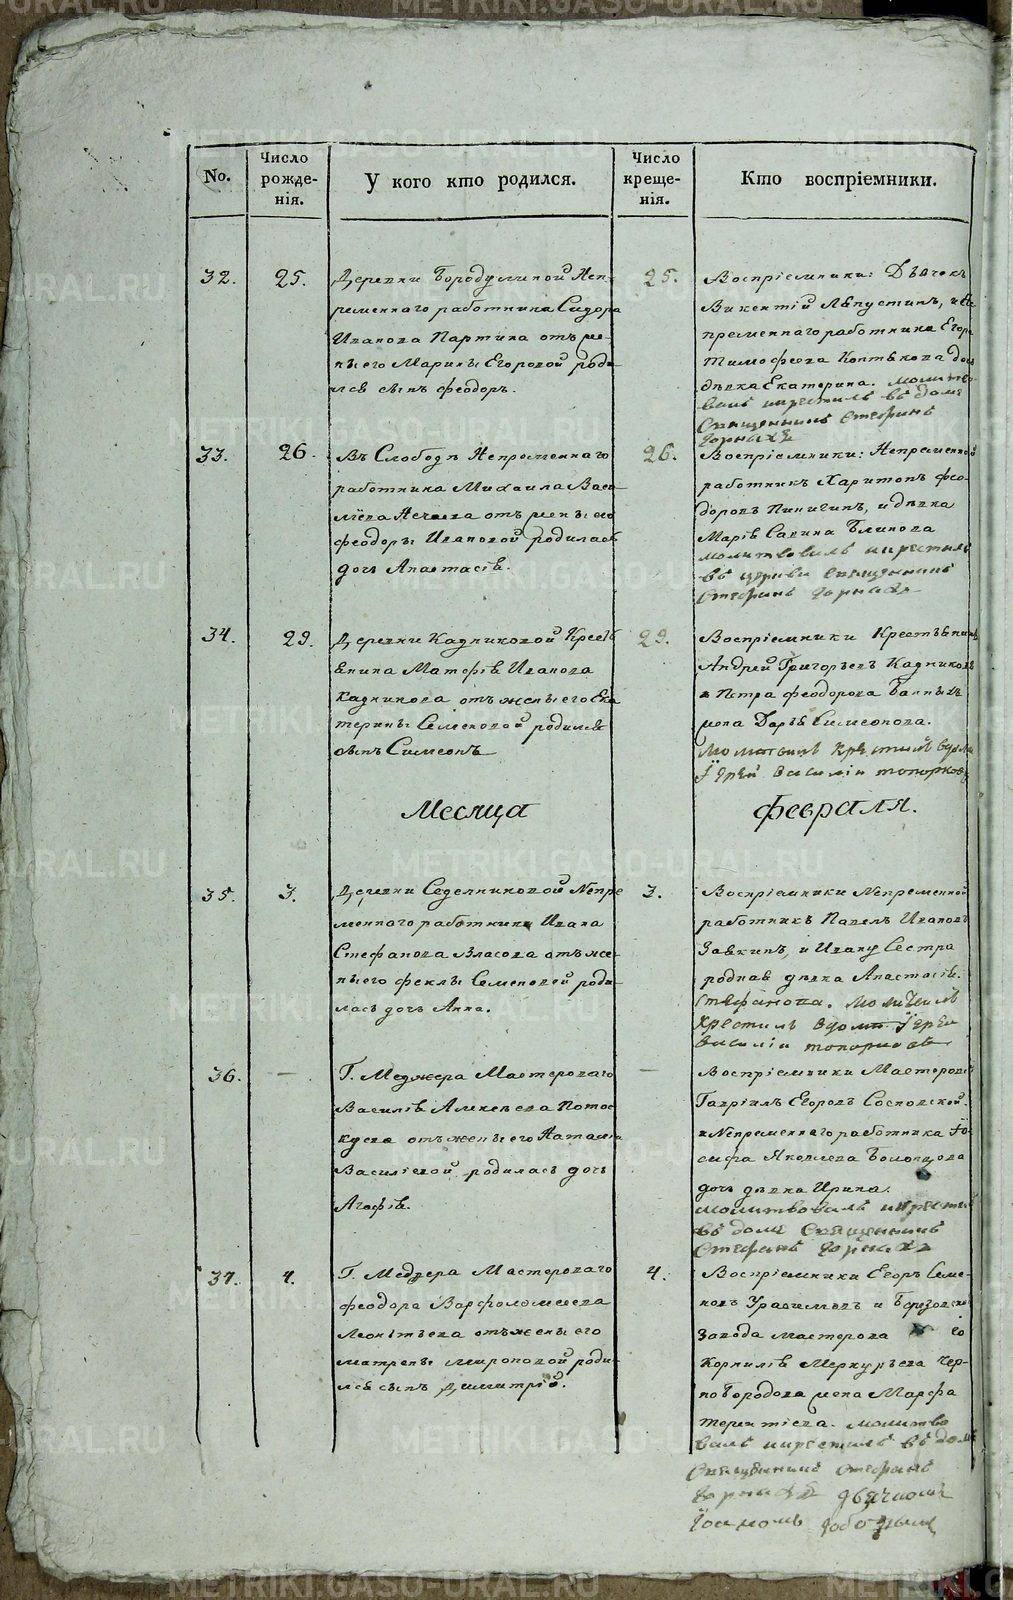 No.
Число рожде-нія.
У кого кто родился.
Число креще-нія.
Кто воспріемники.
32.
25.
Деревни Бородулиной Неп-
ременнаго работника Сидора
Иванова Партина отъ же-
ны его Марины Егоровой роди-
лся сынъ феодоръ.
25.
Воспріемники: Дьячекъ
Викентій Лѣпустинъ, и Не
пременнаго работника Егора
Тимофеева дочь
дѣвка Екатерина. молитво-
валъ и крестилъ въ доме
Священникъ Стефанъ
33.
26.
Въ Слободѣ Непременнаго
работника Михаила Васи
лїева отъ жены его
феодоры Ивановой родилась
дочь Анастасія.
26.
Воспріемники: Непременной
работникъ Харитонъ фео-
доровъ Пиничинъ, и дѣвка
Марія Савина Блинова
молитвовалъ и крестилъ
въ церкви Священникъ
Стефанъ
34.
29.
Деревни Кадниковой Кресть
янина Матфія Иванова
Кадникова отъ жены его Ека
терины Семеновой родился
сынъ Симеонъ
29.
Воспріемники Крестьянинъ
Андрей Григорьевъ Кадниковъ
и Петра феодорова
жена Дарья Симеонова.
крестилъ вдоме
Іерей василіи топорковъ
Месяца
февраля.
35.
3.
Деревни Седелниковой Непре
меннаго работника Ивана
Стефанова Власова отъ же-
ны его феклы Семеновой роди-
лась дочь Анна.
3.
Воспріемники Непременной
работникъ Павелъ Ивановъ
Завкинъ, и Ивану Сестра
родная дѣвка Анастасія.
Стефанова.
Крестилъ вдоме Іерей
василіи топорковъ
36.
—
Г. Меджера Мастероваго
Василія Алексеева Потос
куева отъ жены его Наталіи
Василіевой родилась дочь
Агафія.
—
Воспріемники Мастеровой
Гавріилъ Егоровъ Сосновской.
и Непременнаго работника Іо-
сифа Яковлева
дочь дѣвка Ирина.
молитвовалъ и крестил
въ доме Священникъ
Стефанъ
37.
4.
Г. Меджера Мастероваго
феодора Варфоломеева
Леонтьева отъ жены его
матрены мироновой роди-
лся сынъ Димитрій.
4.
Воспріемники Егоръ Семе-
новъ и Березовскаго
Завода мастерова
Корнилія Меркурьева Чер-
нобородова жена Марфа
терентіева. молитво
валъ и крестилъ въ доме
Священникъ Стефанъ